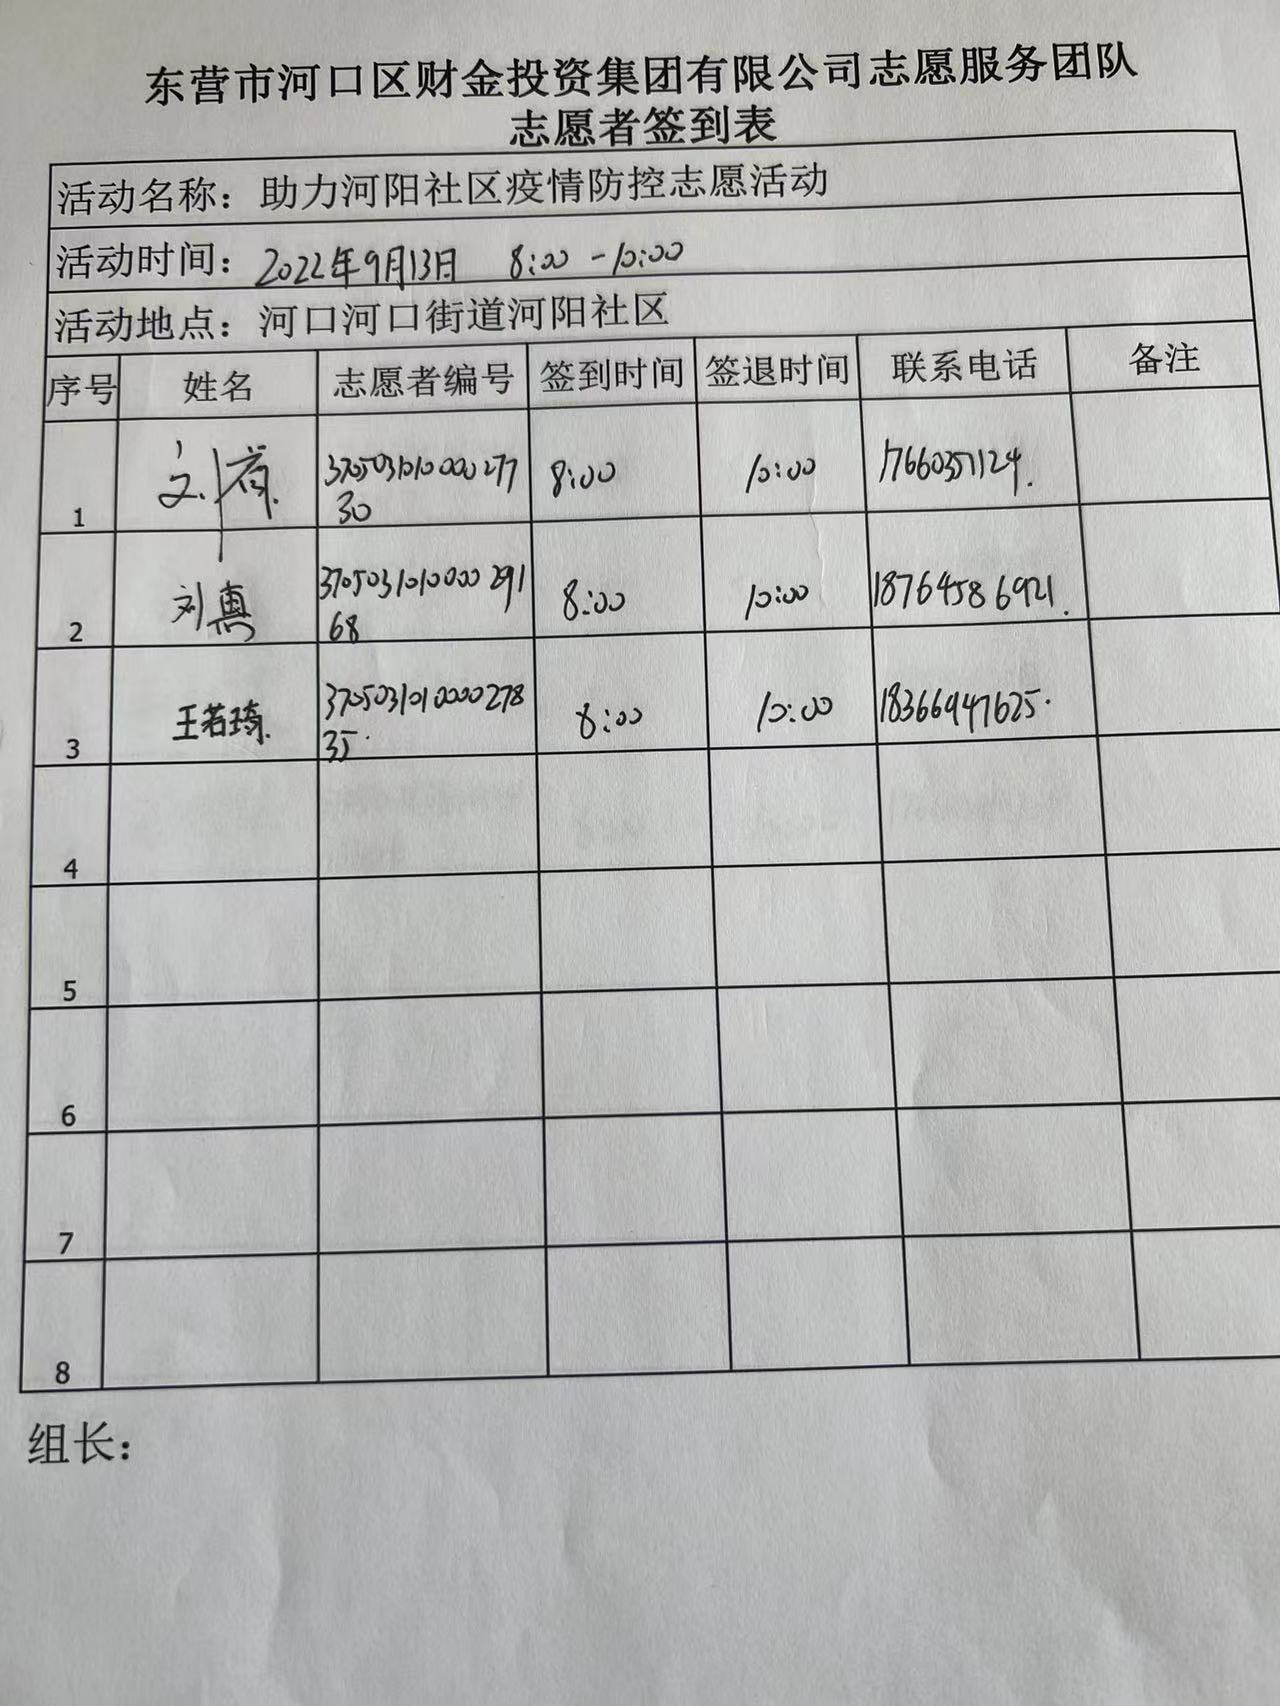 东营市河口区财金投资集团有限公司志愿服务团队
志愿者签到表
活动名称：助力河阳社区疫情防控志愿活动
活动时间：2022年9月13日 8:00-10:00
活动地点：河口河口街道河阳社区
序号 姓名 志愿者编号 签到时间 签退时间 联系电话 备注
1 刘 370503101000027730 8:00 10:00 17660351124.
2 刘惠 370503101000029168 8:00 10:00 18764586921.
3 王若琦. 370503101000027835. 8:00 10:00 18366947625.
4
5
6
7
8
组长：